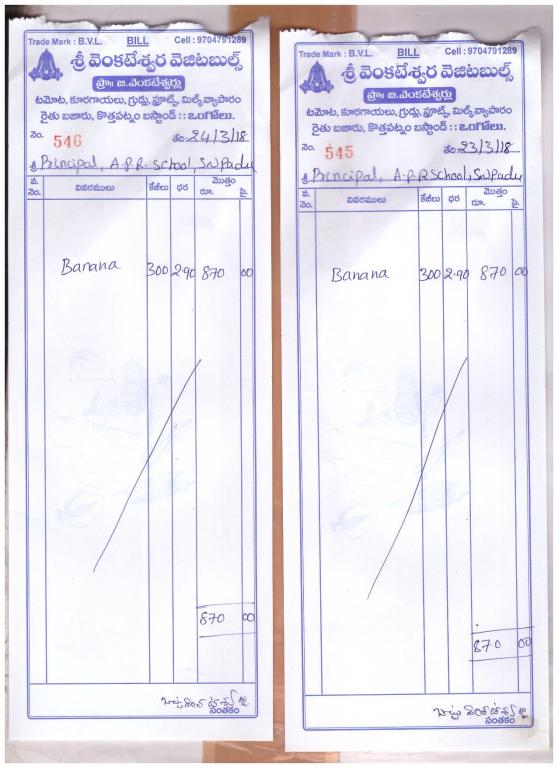 Trade Mark : B.V.L. BILL Cell : 9704791289
శ్రీ వెంకటేశ్వర వెజిటబుల్స్
ప్రొః బి.వెంకటేశ్వర్లు
టమోట, కూరగాయలు, గ్రుడ్లు, ఫ్రూట్స్, మిల్క్ వ్యాపారం
రైతు బజారు, కొత్తపట్నం బస్టాండ్ :: ఒంగోలు.
నెం. 546 తేది: 24/3/18
శ్రీ Principal, A.P.R. School, S.N.Padu
వ. నెం. వివరములు కేజీలు ధర మొత్తం రూ. పై.
Banana 300 2.90 870 00
870 00
సంతకం
Trade Mark : B.V.L. BILL Cell : 9704791289
శ్రీ వెంకటేశ్వర వెజిటబుల్స్
ప్రొః బి.వెంకటేశ్వర్లు
టమోట, కూరగాయలు, గ్రుడ్లు, ఫ్రూట్స్, మిల్క్ వ్యాపారం
రైతు బజారు, కొత్తపట్నం బస్టాండ్ :: ఒంగోలు.
నెం. 545 తేది: 23/3/18
శ్రీ Principal, A.P.R School, S.N.Padu
వ. నెం. వివరములు కేజీలు ధర మొత్తం రూ. పై.
Banana 300 2.90 870 00
870 00
సంతకం